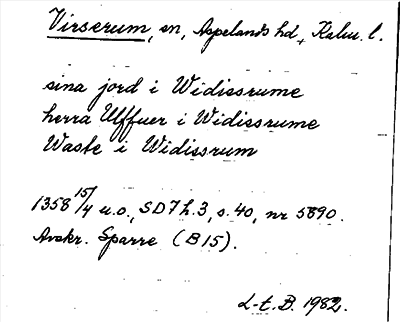 Virserum, sn, Aspelands hd, Kalm. l.
sina jord i Widissrume
herra Ulffuer i Widissrume
Waste i Widissrum
1358 15/4 u.o., SD7h.3, s. 40, nr 5890.
Avskr. Sparre (B15).
L-t.B. 1982.